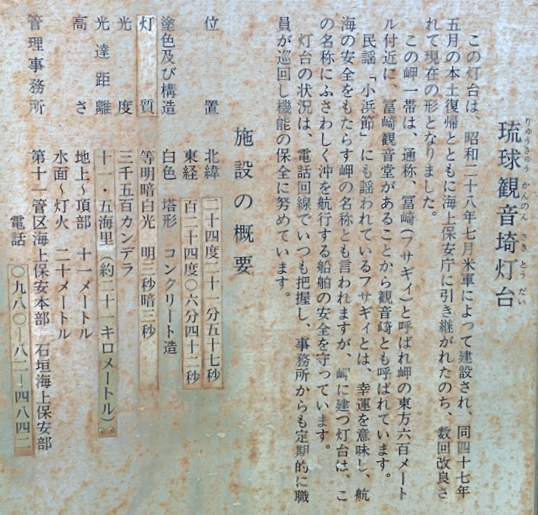 琉球観音埼灯台
りゅうきゅう かんのん さき とう だい
この灯台は、昭和二十八年七月米軍によって建設され、同四十七年
五月の本土復帰とともに海上保安庁に引き継がれたのち、数回改良さ
れて現在の形となりました。
この岬一帯は、通称、冨崎(フサギィ)と呼ばれ岬の東方六百メート
ル付近に、冨崎観音堂があることから観音崎とも呼ばれています。
民謡「小浜節」にも謡われているフサギィとは、幸運を意味し、航
海の安全をもたらす岬の名称とも言われますが、岬に建つ灯台は、こ
の名称にふさわしく沖を航行する船舶の安全を守っています。
灯台の状況は、電話回線でいつも把握し、事務所からも定期的に職
員が巡回し機能の保全に努めています。
施設の概要
位置 北緯 二十四度二十一分五十七秒
東経 百二十四度〇六分四十二秒
塗色及び構造 白色 塔形 コンクリート造
灯質 等明暗白光 明三秒暗三秒
光度 三千五百カンデラ
光達距離 十一・五海里(約二十一キロメートル)
高さ 地上~頂部 十一メートル
水面~灯火 二十メートル
管理事務所 第十一管区海上保安本部 石垣海上保安部
電話 〇九八〇―八二―四八四二